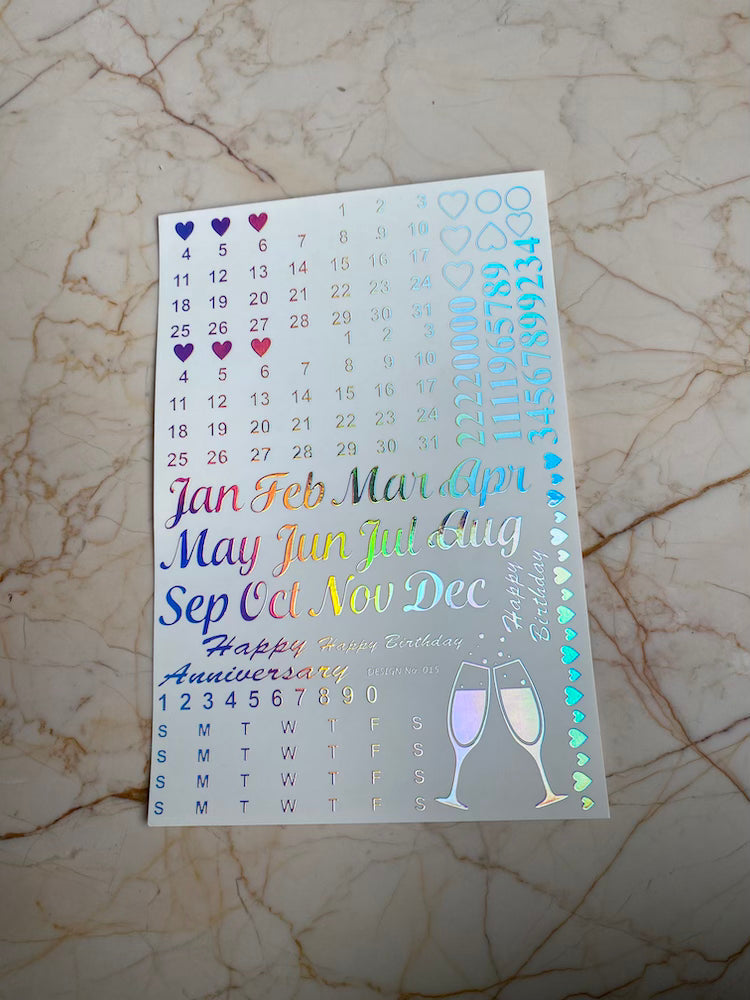 1 2 3
4 5 6 7 8 9 10
11 12 13 14 15 16 17
18 19 20 21 22 23 24
25 26 27 28 29 30 31
1 2 3
4 5 6 7 8 9 10
11 12 13 14 15 16 17
18 19 20 21 22 23 24
25 26 27 28 29 30 31
22220000
1111965789
34567899234
Jan Feb Mar Apr
May Jun Jul Aug
Sep Oct Nov Dec
Happy
Birthday
Happy Happy Birthday
Anniversary DESIGN No. 015
1 2 3 4 5 6 7 8 9 0
S M T W T F S
S M T W T F S
S M T W T F S
S M T W T F S